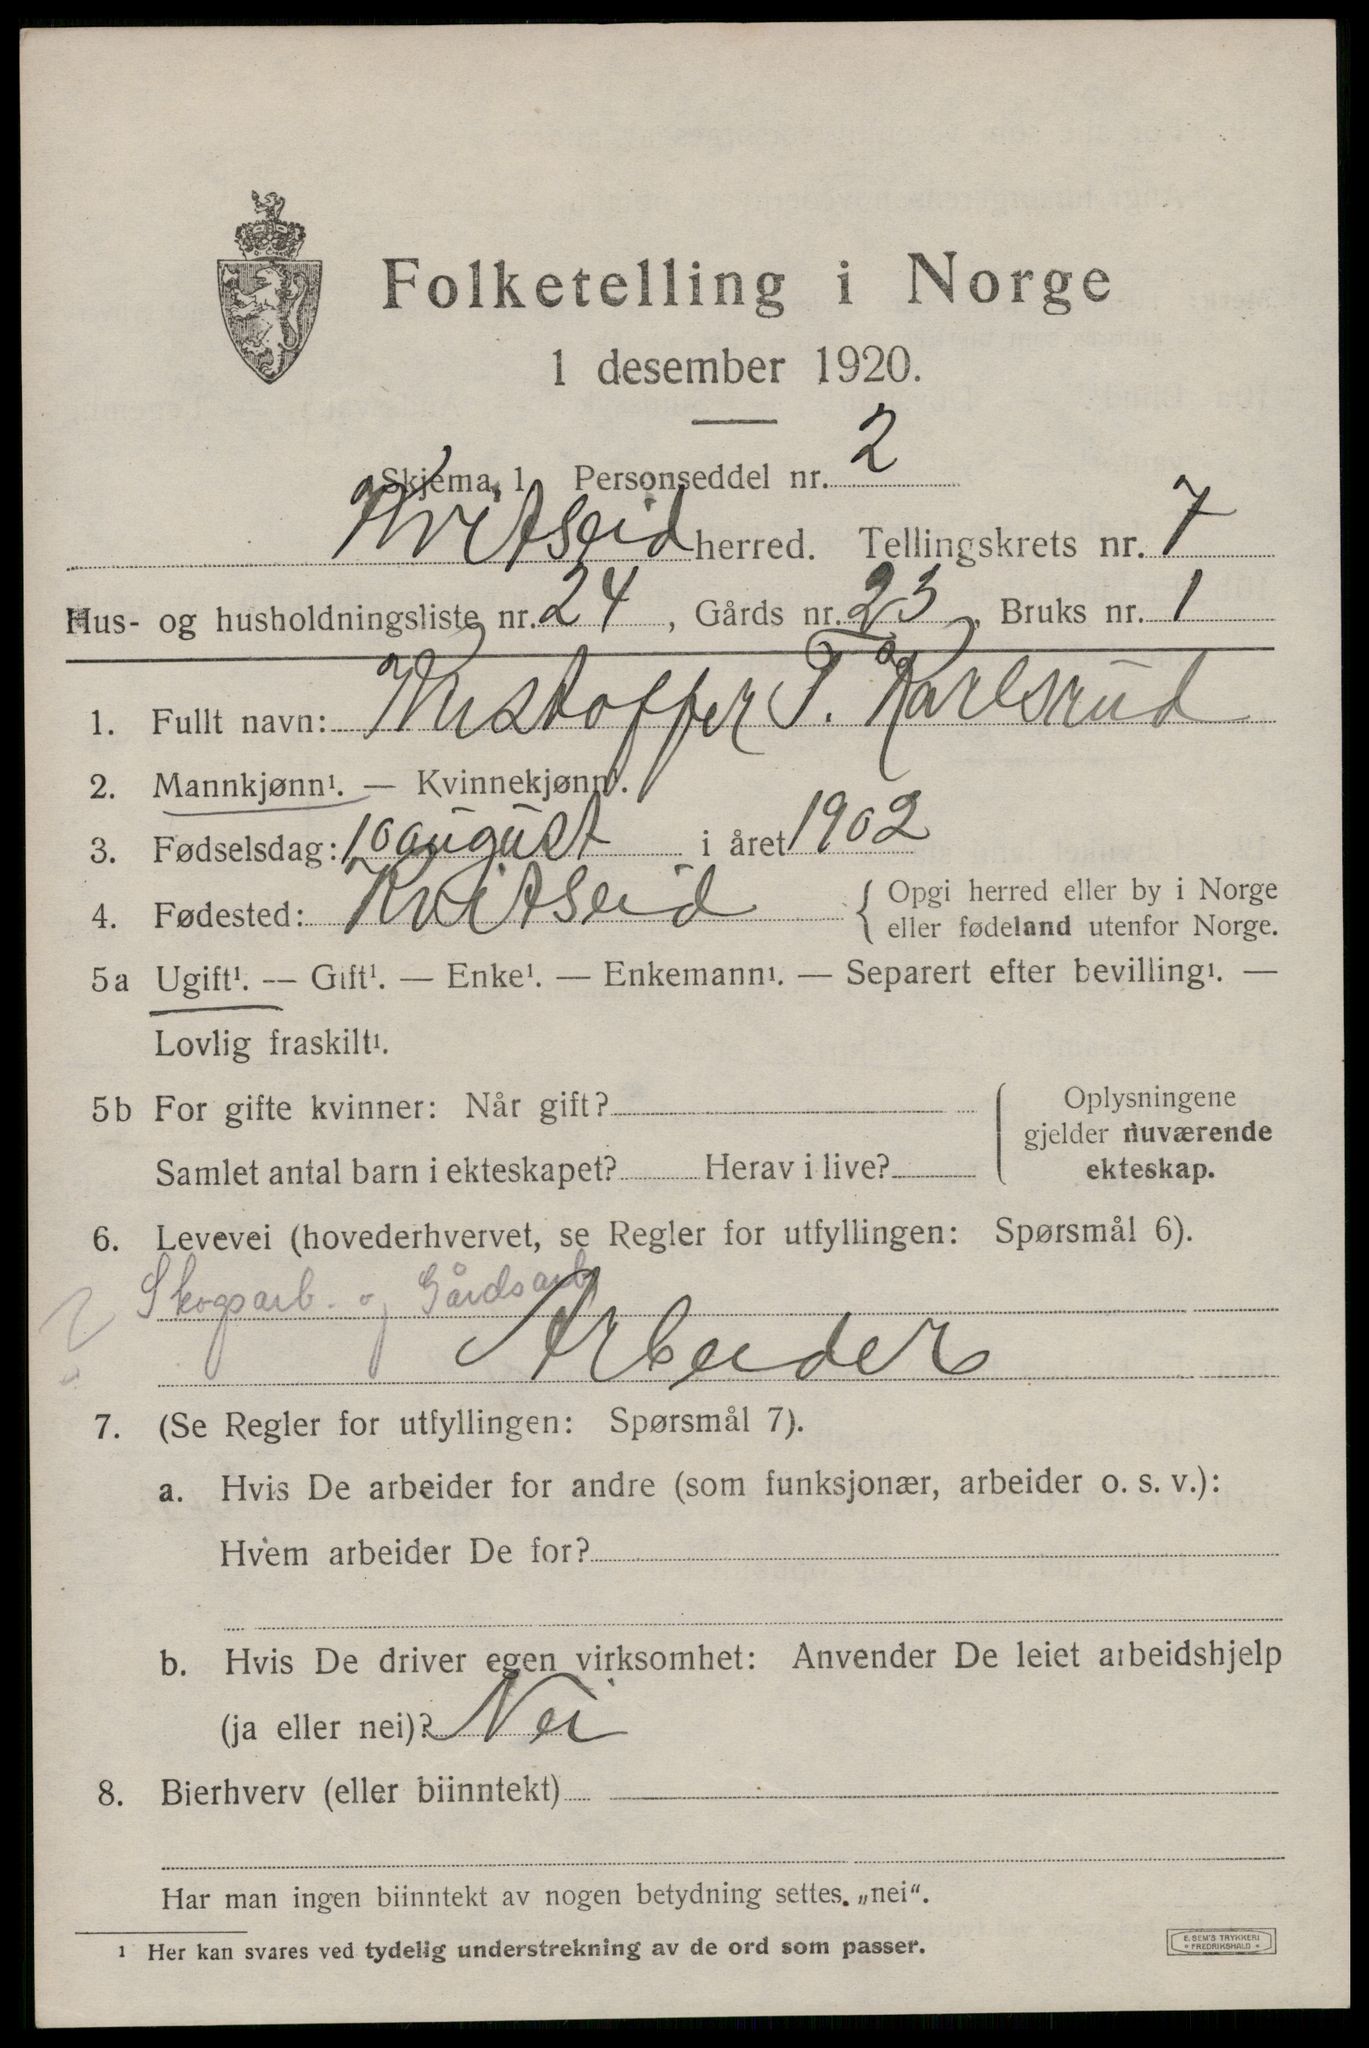 Folketelling i Norge
1 desember 1920.
Skjema 1 Personseddel nr. 2
Kvitseid herred. Tellingskrets nr. 7
Hus- og husholdningsliste nr. 24, Gårds nr. 23, Bruks nr. 1
1. Fullt navn: Kristoffer T. Karlsrud
2. Mannkjønn¹. — Kvinnekjønn¹.
3. Fødselsdag: 10 august i året 1902
4. Fødested: Kvitseid { Opgi herred eller by i Norge
eller fødeland utenfor Norge.
5a Ugift¹. — Gift¹. — Enke¹. — Enkemann¹. — Separert efter bevilling¹. —
Lovlig fraskilt¹.
5b For gifte kvinner: Når gift?
Samlet antal barn i ekteskapet? Herav i live?
Oplysningene
gjelder nuværende
ekteskap.
6. Levevei (hovederhvervet, se Regler for utfyllingen: Spørsmål 6).
Skogsarb. og Gårdsarb
Arbeider
7. (Se Regler for utfyllingen: Spørsmål 7).
a. Hvis De arbeider for andre (som funksjonær, arbeider o. s. v.):
Hvem arbeider De for?
b. Hvis De driver egen virksomhet: Anvender De leiet arbeidshjelp
(ja eller nei)? Nei
8. Bierhverv (eller biinntekt)
Har man ingen biinntekt av nogen betydning settes „nei“.
¹ Her kan svares ved tydelig understrekning av de ord som passer.
E. SEM'S TRYKKERI
FREDRIKSHALD